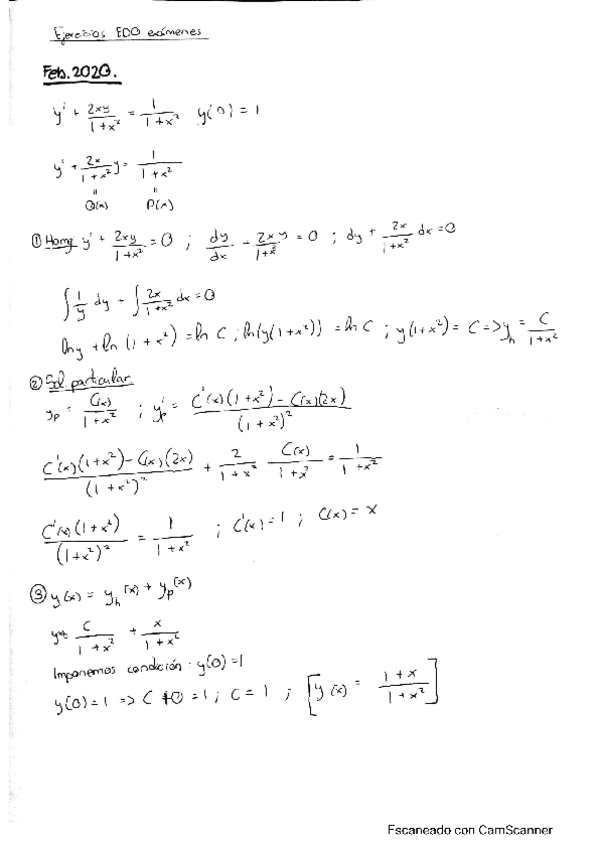 Ejercicios EDO exámenes.
Feb. 2020.
y' + 2xy/(1+x²) = 1/(1+x²) y(0) = 1
y' + 2x/(1+x²) y = 1/(1+x²)
" "
Q(x) P(x)
① Homg y' + 2xy/(1+x²) = 0 ; dy/dx + 2xy/(1+x²) = 0 ; dy + 2x/(1+x²) dx = 0
∫ 1/y dy + ∫ 2x/(1+x²) dx = 0
ln y + ln (1+x²) = ln C ; ln(y(1+x²)) = ln C ; y(1+x²) = C => y_h = C/(1+x²)
② Sol. particular
y_p = C(x)/(1+x²) ; y_p' = (C'(x)(1+x²) - C(x)(2x))/(1+x²)²
(C'(x)(1+x²) - C(x)(2x))/(1+x²)² + 2/(1+x²) C(x)/(1+x²) = 1/(1+x²)
C'(x)(1+x²)/(1+x²)² = 1/(1+x²) ; C'(x) = 1 ; C(x) = x
③ y(x) = y_h(x) + y_p(x)
C/(1+x²) + x/(1+x²)
Imponemos condición: y(0) = 1
y(0) = 1 => C + 0 = 1 ; C = 1 ; [y(x) = (1+x)/(1+x²)]
Escaneado con CamScanner